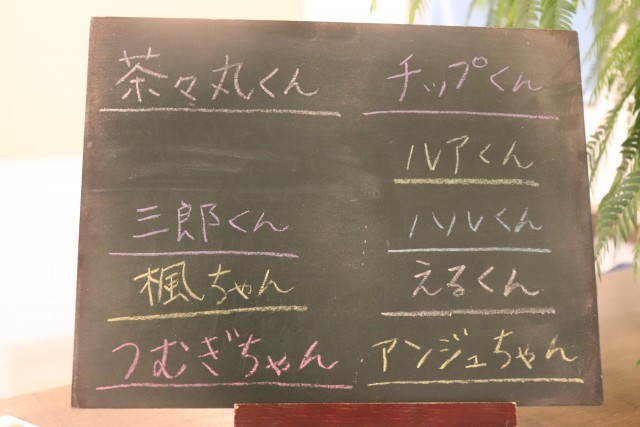 茶々丸くん
三郎くん
楓ちゃん
つむぎちゃん
チップくん
ルアくん
ハルくん
えるくん
アンジュちゃん